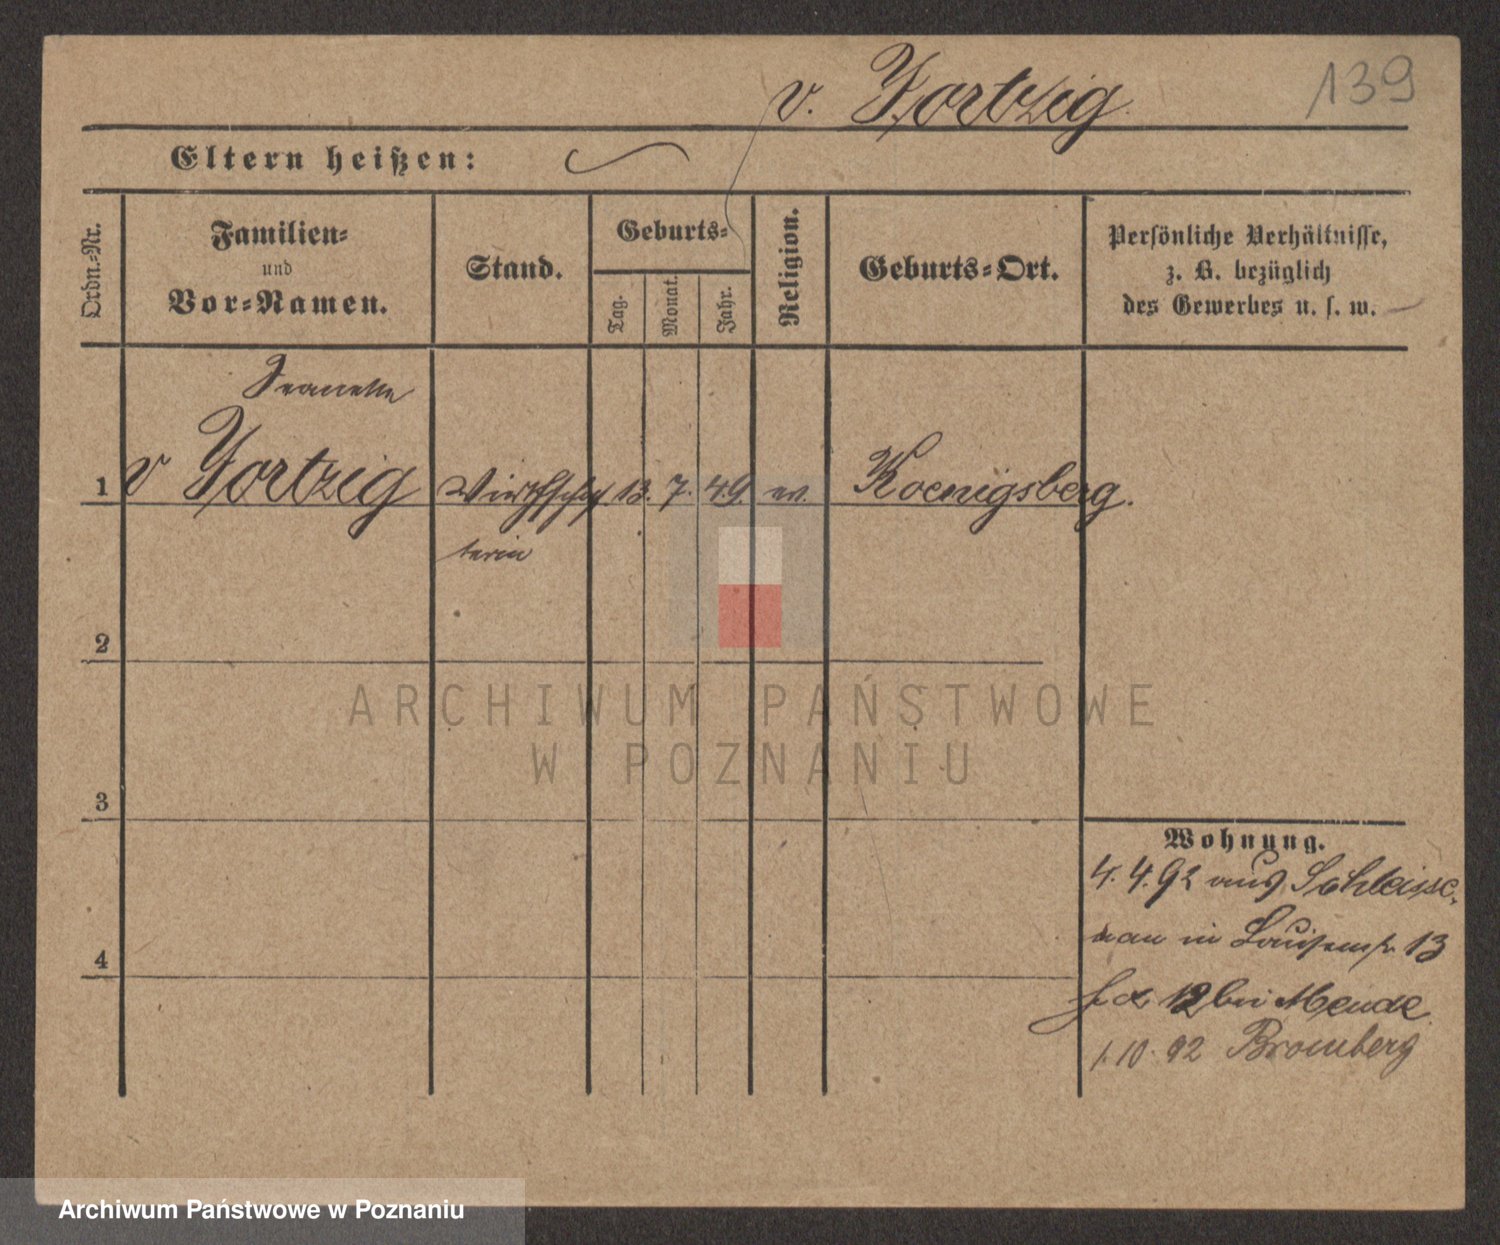 139
v. Yortzig.
Eltern heißen:
Ordn.-Nr.
Familien-
und
Vor-Namen.
Stand.
Geburts-
Tag.
Monat.
Jahr.
Religion.
Geburts-Ort.
Persönliche Verhältnisse,
z. B. bezüglich
des Gewerbes u. s. w.
Jeanette
1 v Yortzig Wirthschaf 13. 7. 49 ev. Koenigsberg.
terin
2
3
4
Wohnung.
4. 4. 92 aus Schleisse
nau in Louisenstr. 13
12 bei Mende
1. 10. 92 Bromberg
ARCHIWUM PAŃSTWOWE
W POZNANIU
Archiwum Państwowe w Poznaniu